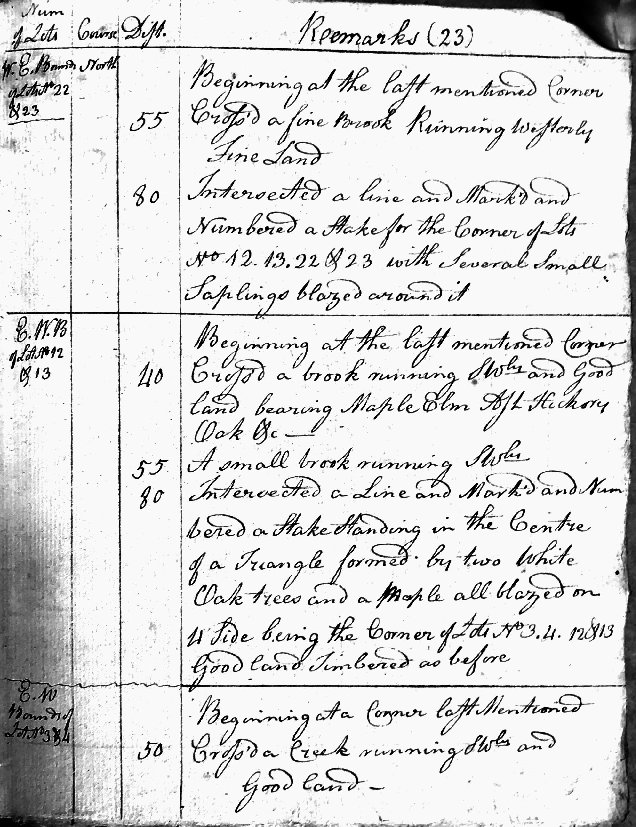 Num
of Lots Course Dist. Reemarks (23)
W. E. Bounds North
of Lots No 22
& 23
Beginning at the last mentioned Corner
55 Cross'd a fine Brook Running Westerly
Fine Land
80 Intersected a line and Mark'd and
Numbered a Stake for the Corner of Lots
No 12. 13. 22 & 23 with Several Small
Saplings blazed around it
E. W. B
of Lots No 12
& 13
Beginning at the last mentioned Corner
40 Cross'd a brook running SWbs and Good
land bearing Maple Elm Ash Hickory
Oak &c —
55 A small brook running SWbs
80 Intersected a Line and Mark'd and Num
bered a Stake Standing in the Centre
of a Triangle formed by two White
Oak trees and a Maple all blazed on
4 Side being the Corner of Lots No 3. 4. 12 & 13
Good land Timbered as before
E. W
Bounds of
Lots No 3 & 4
Beginning at a Corner last Mentioned
50 Cross'd a Creek running SWbs and
Good land —